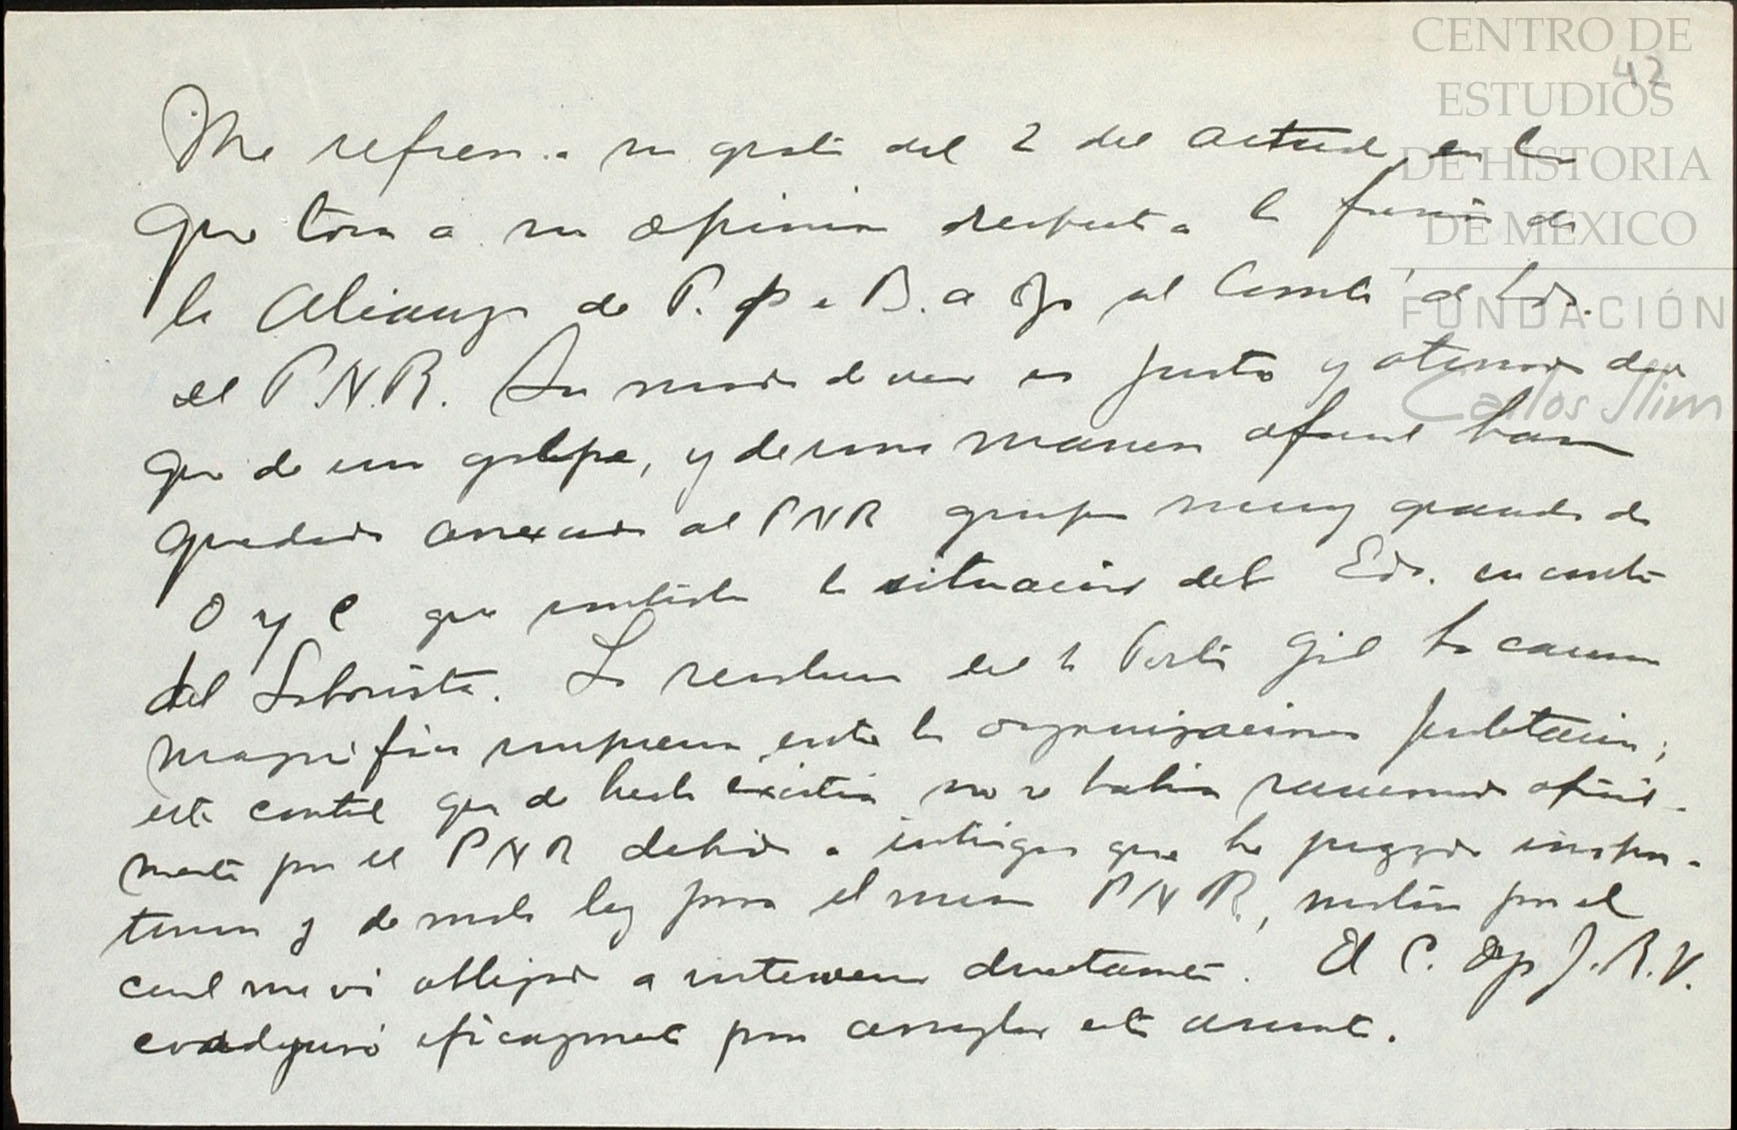 CENTRO DE
ESTUDIOS
DE HISTORIA
DE MEXICO
FUNDACIÓN
Carlos Slim
42
Me refiero a su grata del 2 del actual, en la
que toca a su opinion respecto a la fusión de
la Alianza de P. B. a al Comité de Edo.
del P.N.R. Su modo de ver es justo y
que de un golpe, y de una manera oficial han
quedado anexados al PNR grupos muy grandes de
O y C que controlan la situación del Edo. en contra
del Laborista. La resolucion del Lic Portes Gil ha causado
magnifica impresion entre las organizaciones
este control que de hecho existia no se habia reconocido oficial-
mente por el PNR debido a intrigas que he juzgado inopor-
tunas y de mala ley para el mismo PNR, motivo por el
cual me vi obligado a intervenir directamente. El C. Dip J.R.V.
coadyuvó eficazmente para arreglar este asunto.